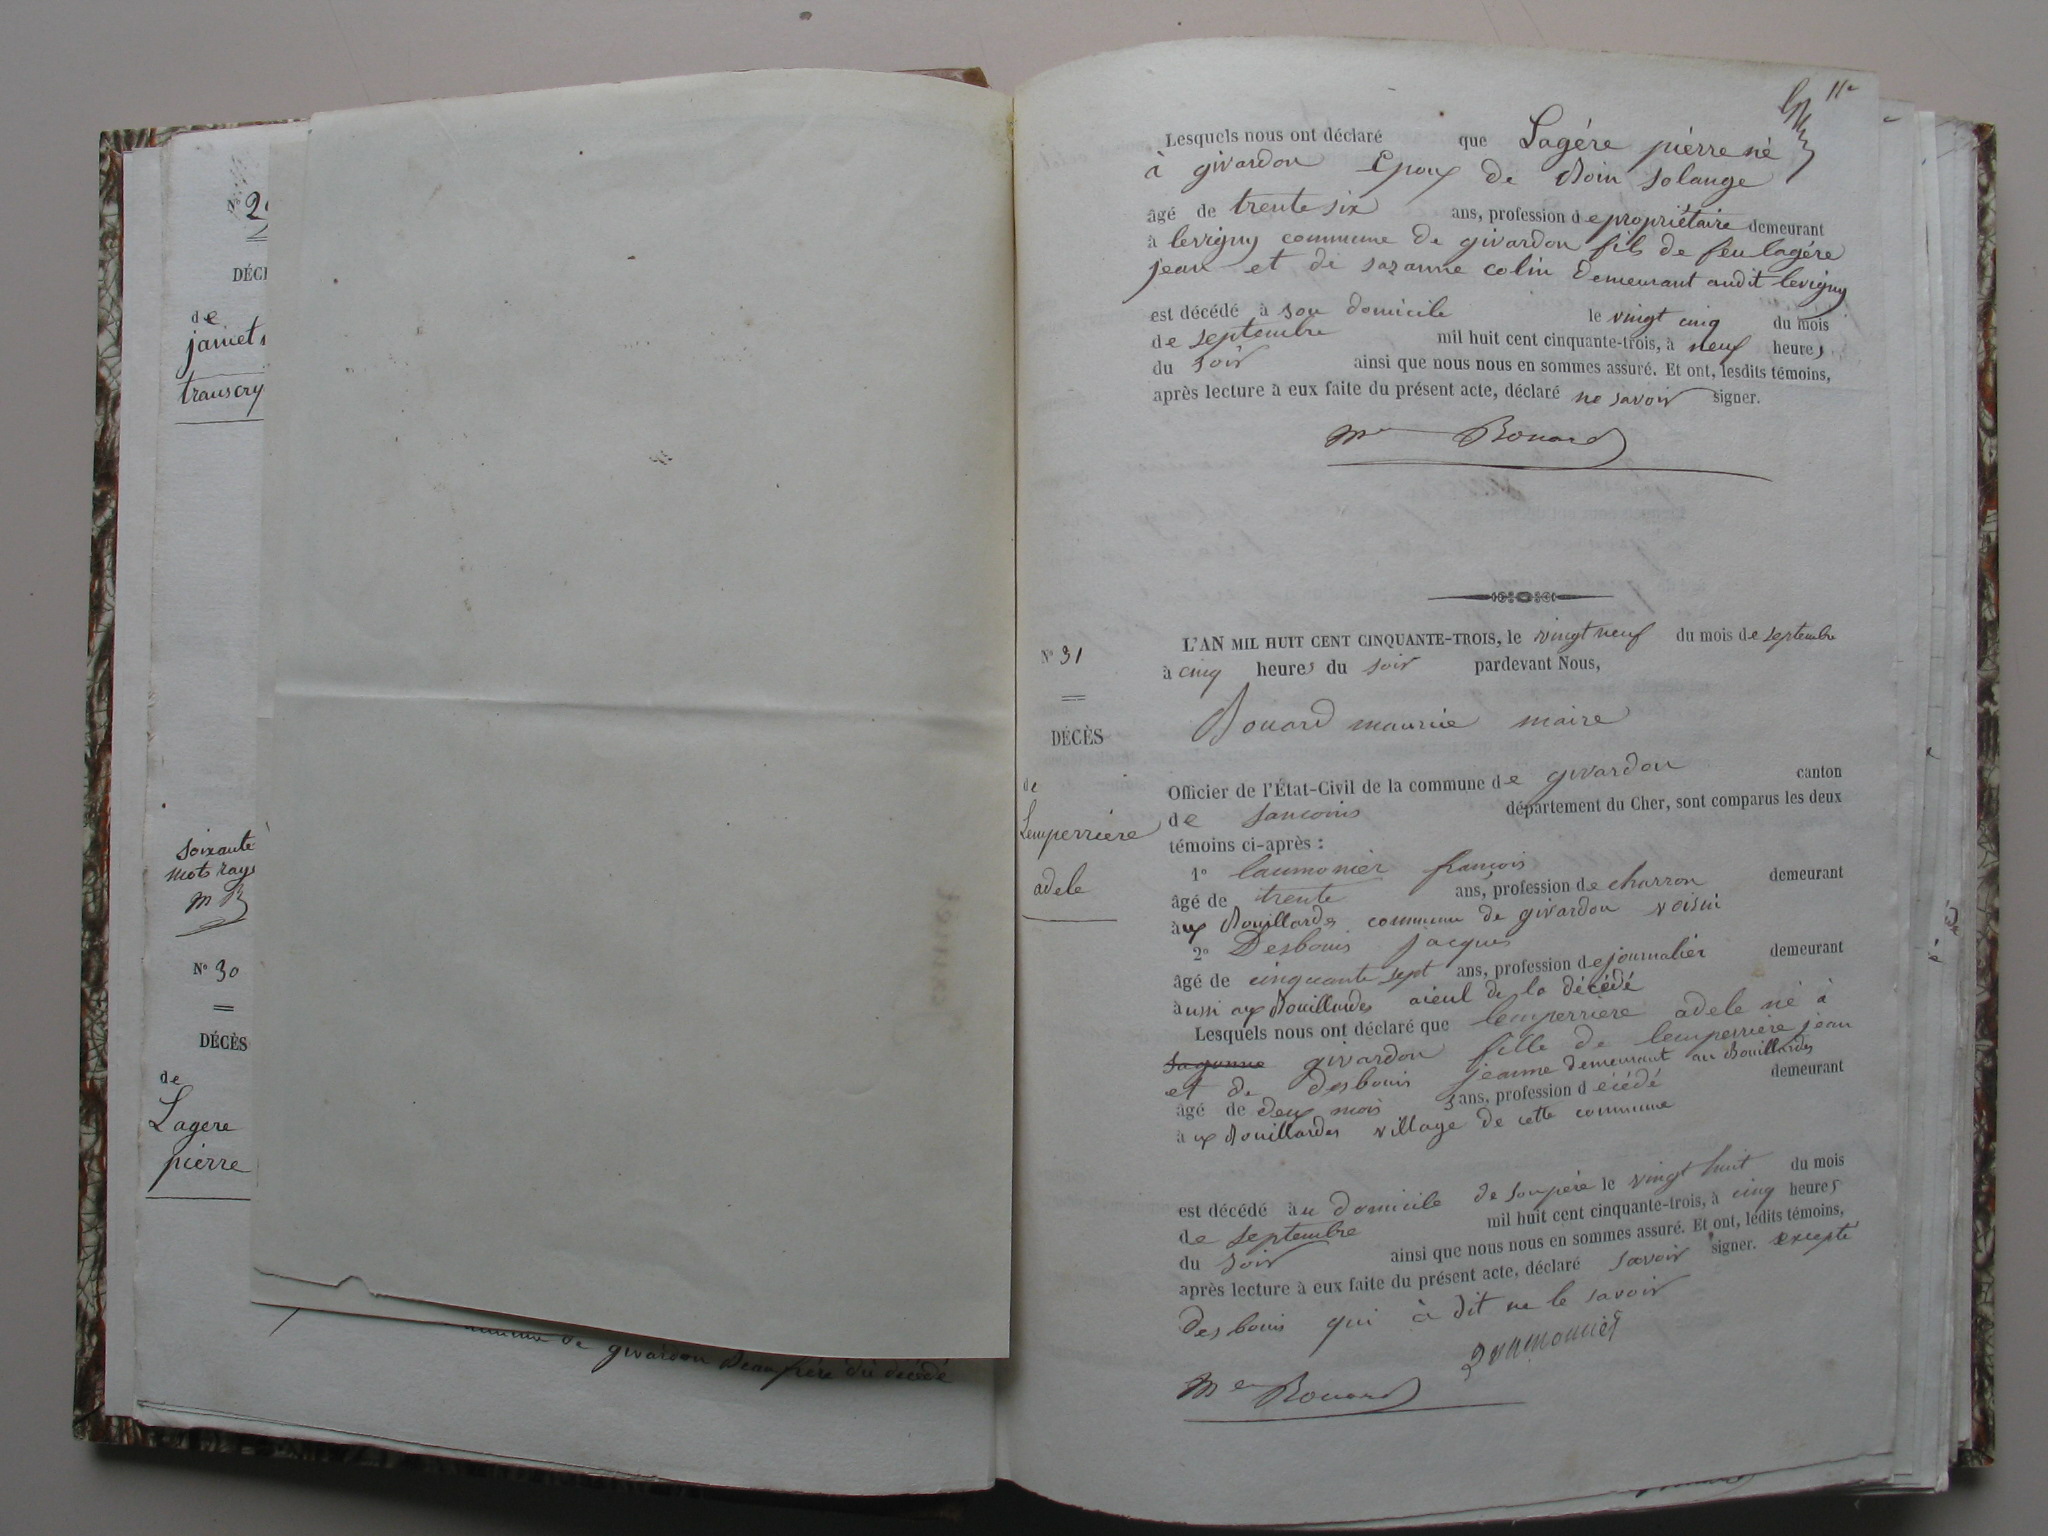 N° 29
DÉCÈ
de
janiets
transcry
soixante
mots rayé
M B
N° 30
DÉCÈS
de
Lagere
pierre
de givardon Beau frère du décédé
11e
Lesquels nous ont déclaré que Lagére piérre né
à givardon Epoux de Roin solange
âgé de trente six ans, profession de propriétaire demeurant
à levigny commune de givardon fils de feu lagére
jean et de sazanne colin Demeurant audit levigny
est décédé à son domicile le vingt cinq du mois
de septembre mil huit cent cinquante-trois, à neuf heures
du soir ainsi que nous nous en sommes assuré. Et ont, lesdits témoins,
après lecture à eux faite du présent acte, déclaré ne savoir signer.
Mce Bouard
N° 31
DÉCÈS
de
Lemperriere
adele
L'AN MIL HUIT CENT CINQUANTE-TROIS, le vingt neuf du mois de septembre
à cinq heures du soir pardevant Nous,
Bouard maurice maire
Officier de l'État-Civil de la commune de givardon canton
de sancoins département du Cher, sont comparus les deux
témoins ci-après :
1° laumonier francois
âgé de trente ans, profession de charron demeurant
aux Bouillardes commune de givardon voisin
2° Desbouis jacques
âgé de cinquante sept ans, profession de journalier demeurant
aussi aux Bouillardes aieul de la décédé
Lesquels nous ont déclaré que lemperriere adele né à
sagonne givardon fille de lemperriere jean
et de desbouis jeanne demeurant au Bouillardes
âgé de deux mois ans, profession décédé demeurant
aux Bouillardes village de cette commune
est décédé au domicile de son père le vingt huit du mois
de septembre mil huit cent cinquante-trois, à cinq heures
du soir ainsi que nous nous en sommes assuré. Et ont, lédits témoins,
après lecture à eux faite du présent acte, déclaré savoir signer. excepté
desbouis qui à dit ne le savoir
Mce Bouard